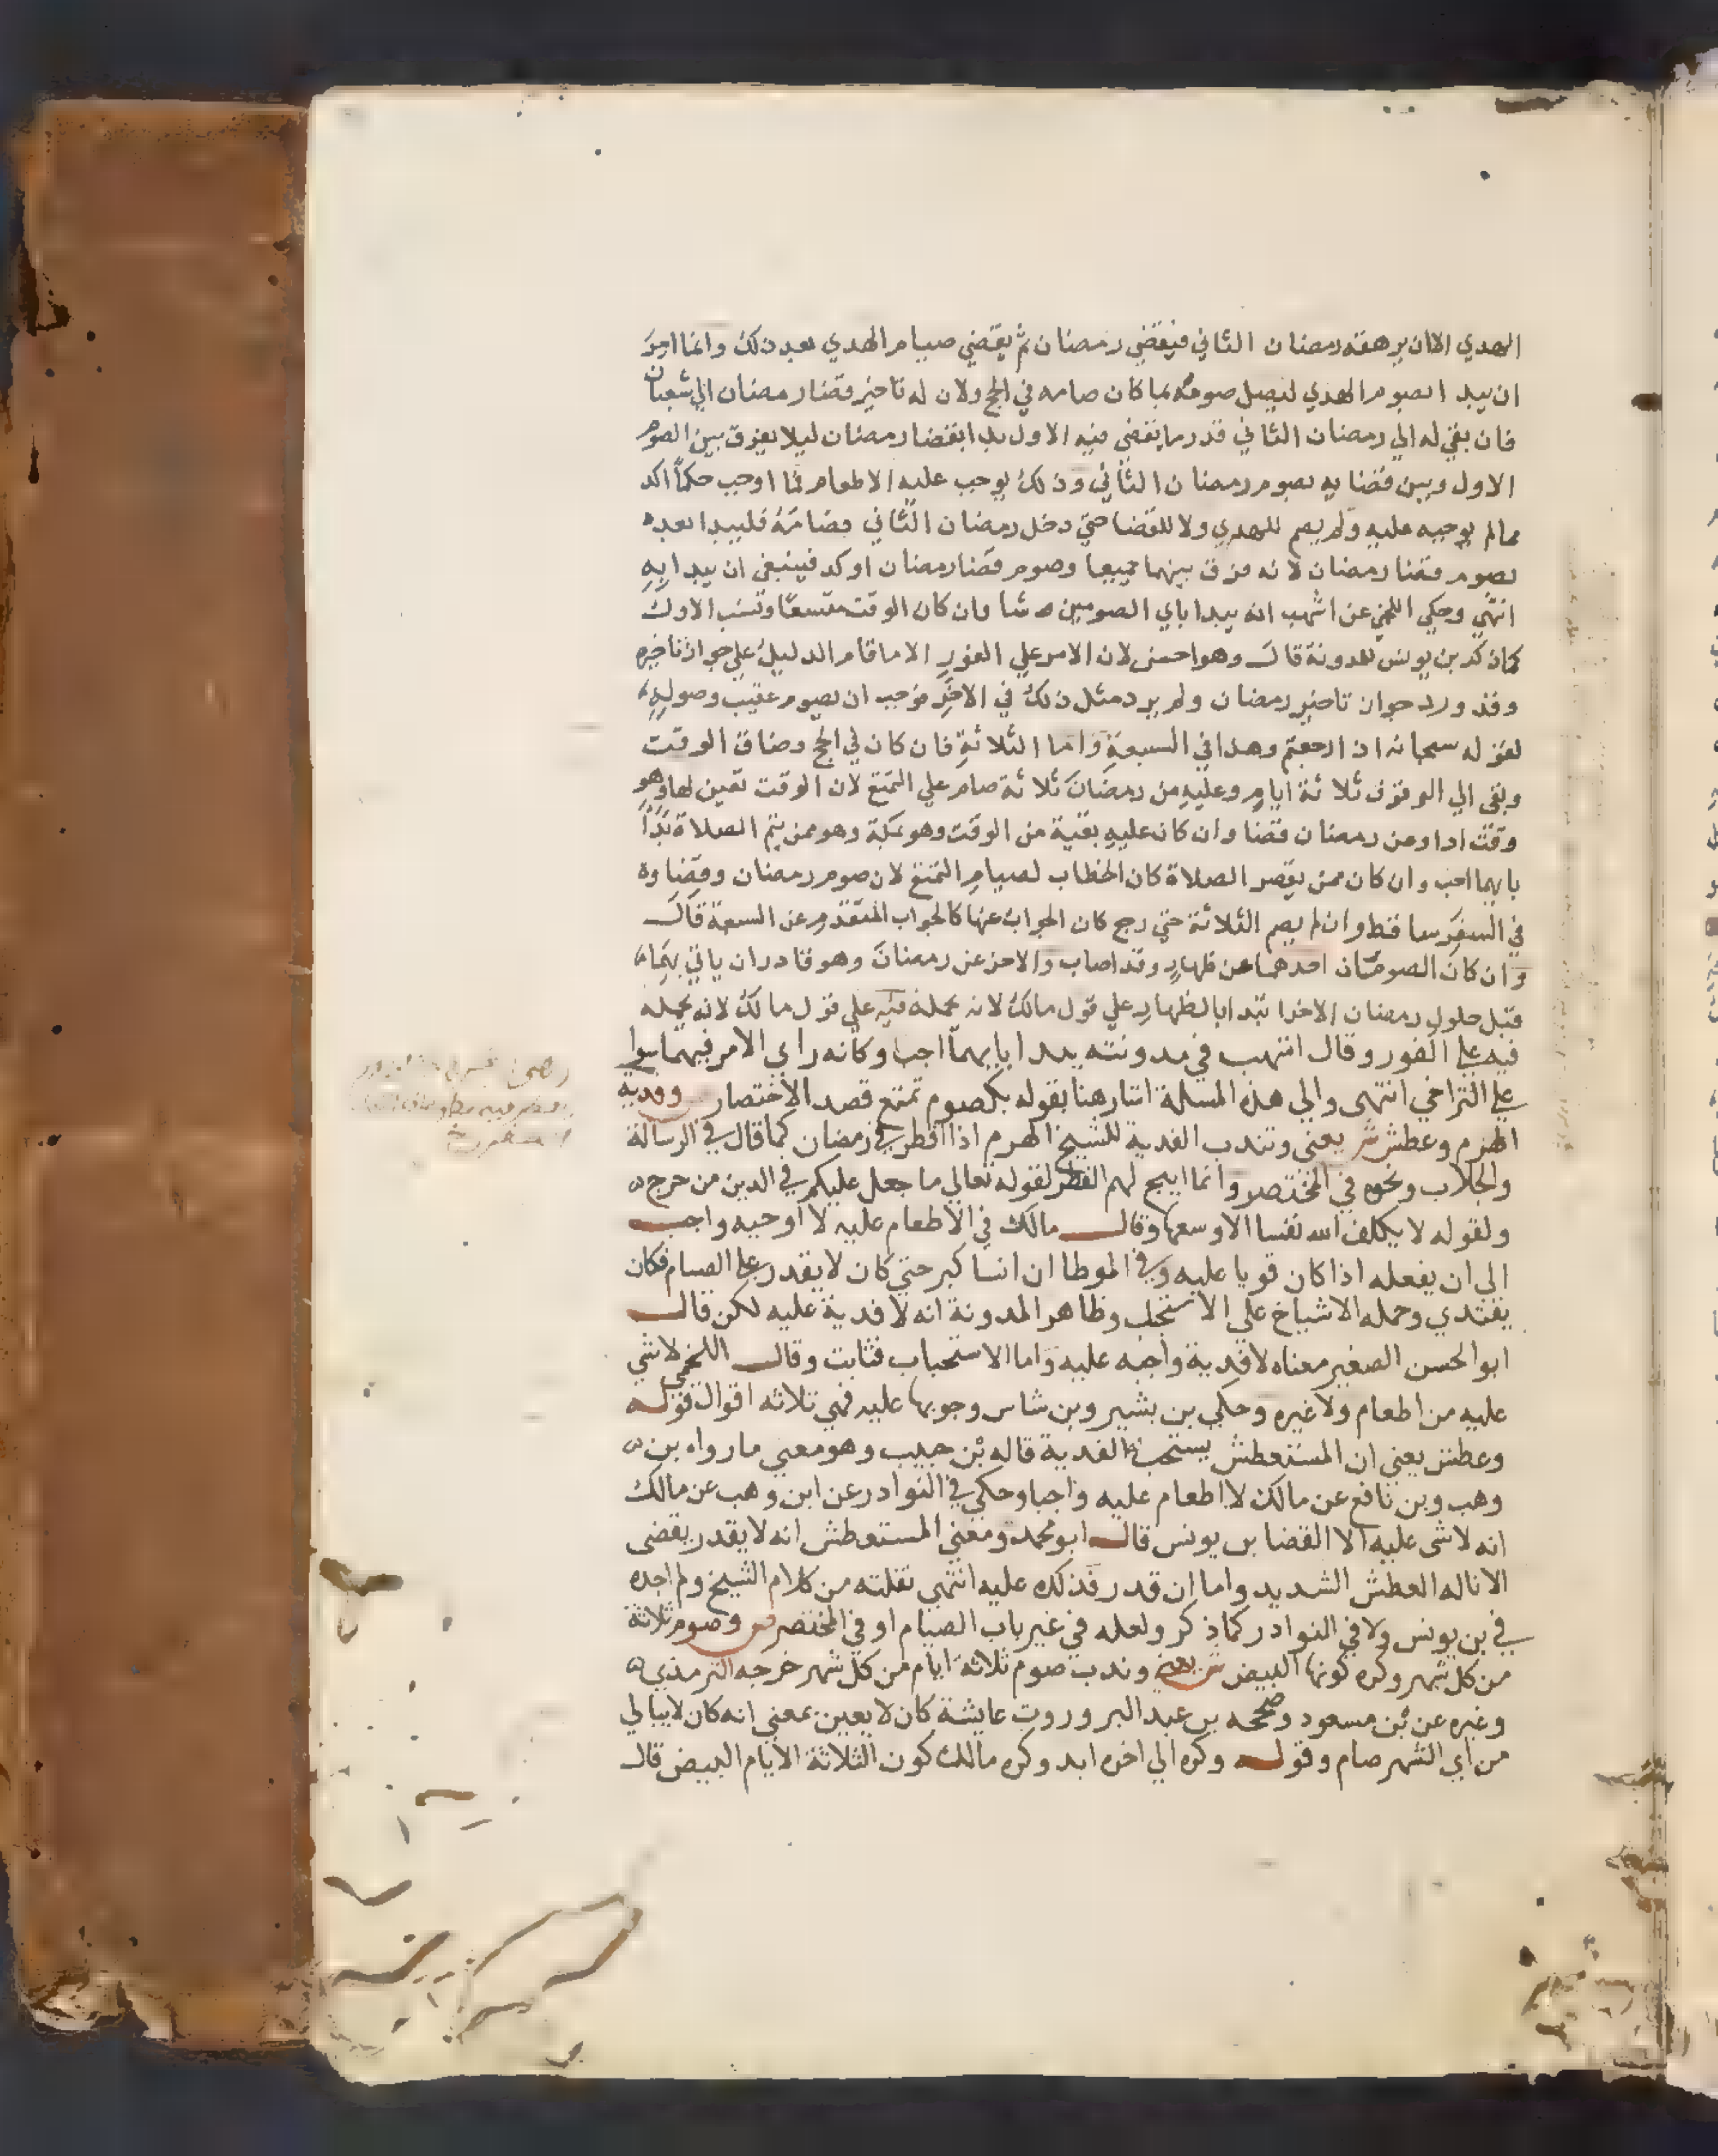 الهدي الا ان يرهقه رمضان الثاني فيقضي رمضان ثم يقضي صيام الهدي بعد ذلك وانما امر
ان يبدا بصوم الهدي ليصل صومه بما كان صامه في الحج ولان له تاخير قضا رمضان الي شعبان
فان بقي له الي رمضان الثاني قدر ما يقضي فيه الاول بدا بقضا رمضان ليلا يفرق بين الصوم
الاول وبين قضايه بصوم رمضان الثاني وذلك يوجب عليه الاطعام فما اوجب حكما اكد
مما لم يوجبه عليه ولم يصم للهدي ولا للقضا حتي دخل رمضان الثاني فصامه فليبدا بعده
بصوم قضا رمضان لانه فرق بينهما جميعا وصوم قضا رمضان اوكد فينبغي ان يبدا به
انتهي وحكي اللخمي عن اشهب انه يبدا باي الصومين شا وان كان الوقت متسعا ونسب الاول
كما ذكر بن يونس للمدونة قال وهو احسن لان الامر علي الفور الا ما قام الدليل علي جواز تاخيره
وقد ورد جواز تاخير رمضان ولم يرد مثل ذلك في الاخر فوجب ان يصوم عقيب وصوله
لقوله سبحانه اذا رجعتم وهذا في السبعة واما الثلاثة فان كان في الحج وضاق الوقت
وبقي الي الوقوف ثلاثة ايام وعليه من رمضان ثلاثة صام علي التمتع لان الوقت تعين لها وهو
وقت ادا وعن رمضان قضا وان كان عليه بقية من الوقت وهو بمكة وهو ممن يتم الصلاة بدا
بايهما احب وان كان ممن يقصر الصلاة كان الخطاب لصيام التمتع لان صوم رمضان وقضاوه
في السفر ساقط وان لم يصم الثلاثة حتي رجع كان الجواب عنها كالجواب المتقدم عن السبعة قال
وان كان الصومان احدهما عن ظهار وقد اصاب والاخر عن رمضان وهو قادر ان ياتي بهما
قبل حلول رمضان الاخر ابتدا بالظهار علي قول مالك لانه محمله فيه علي قول مالك لانه يحمله
فيه علي الفور وقال اشهب في مدونته يبدا بايهما احب وكانه راي الامر فيهما سوا
علي التراخي انتهي والي هذه المسلة اشار هنا بقوله بكصوم تمتع قصد الاختصار وفدية
الهرم وعطش ش يعني وتندب الفدية للشيخ الهرم اذا افطر في رمضان كما قال في الرسالة
والجلاب ونحوه في المختصر وانما ابيح لهم الفطر لقوله تعالي ما جعل عليكم في الدين من حرج
ولقوله لا يكلف الله نفسا الا وسعها وقال مالك في الاطعام عليه لا اوجبه واحب
الي ان يفعله اذا كان قويا عليه وفي الموطا ان انسا كبر حتي كان لا يقدر علي الصيام فكان
يفتدي وحمله الاشياخ علي الاستحباب وظاهر المدونة انه لا فدية عليه لكن قال
ابو الحسن الصغير معناه لا فدية واجبه عليه واما الاستحباب فثابت وقال اللخمي لا شي
عليه من اطعام ولا غيره وحكي بن بشير وبن شاس وجوبها عليه فهي ثلاثه اقوال قوله
وعطش يعني ان المستعطش يستحب له الفدية قاله بن حبيب وهو معني ما رواه بن
وهب وبن نافع عن مالك لا اطعام عليه واجبا وحكي في النوادر عن ابن وهب عن مالك
انه لا شي عليه الا القضا بن يونس قال ابو محمد ومعني المستعطش انه لا يقدر يقضي
الا ناله العطش الشديد واما ان قدر فذلك عليه انتهي نقلته من كلام الشيخ ولم اجده
في بن يونس ولا في النوادر كما ذكر ولعله في غير باب الصيام او في المختصر ص وصوم ثلاثة
من كل شهر وكره كونها البيض ش يعني وندب صوم ثلاثه ايام من كل شهر خرجه الترمذي
وغيره عن بن مسعود وصححه بن عبد البر وروت عايشة كان لا يعين بمعني انه كان لا يبالي
من اي الشهر صام وقوله وكره الي اخره ابد وكره مالك كون الثلاثة الايام البيض قال